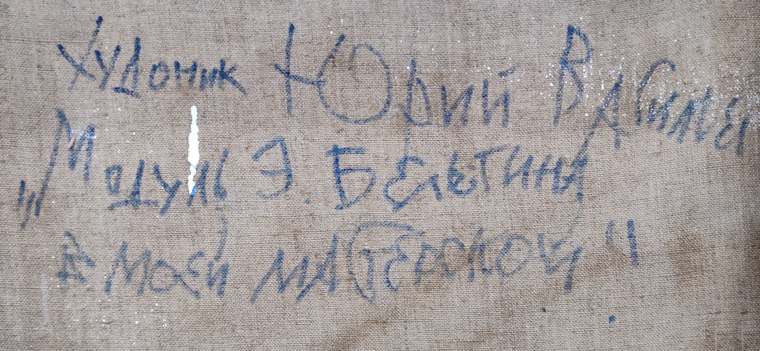 Художник Юрий Васильев
„Модуль Э. Белютина
в моей мастерской"